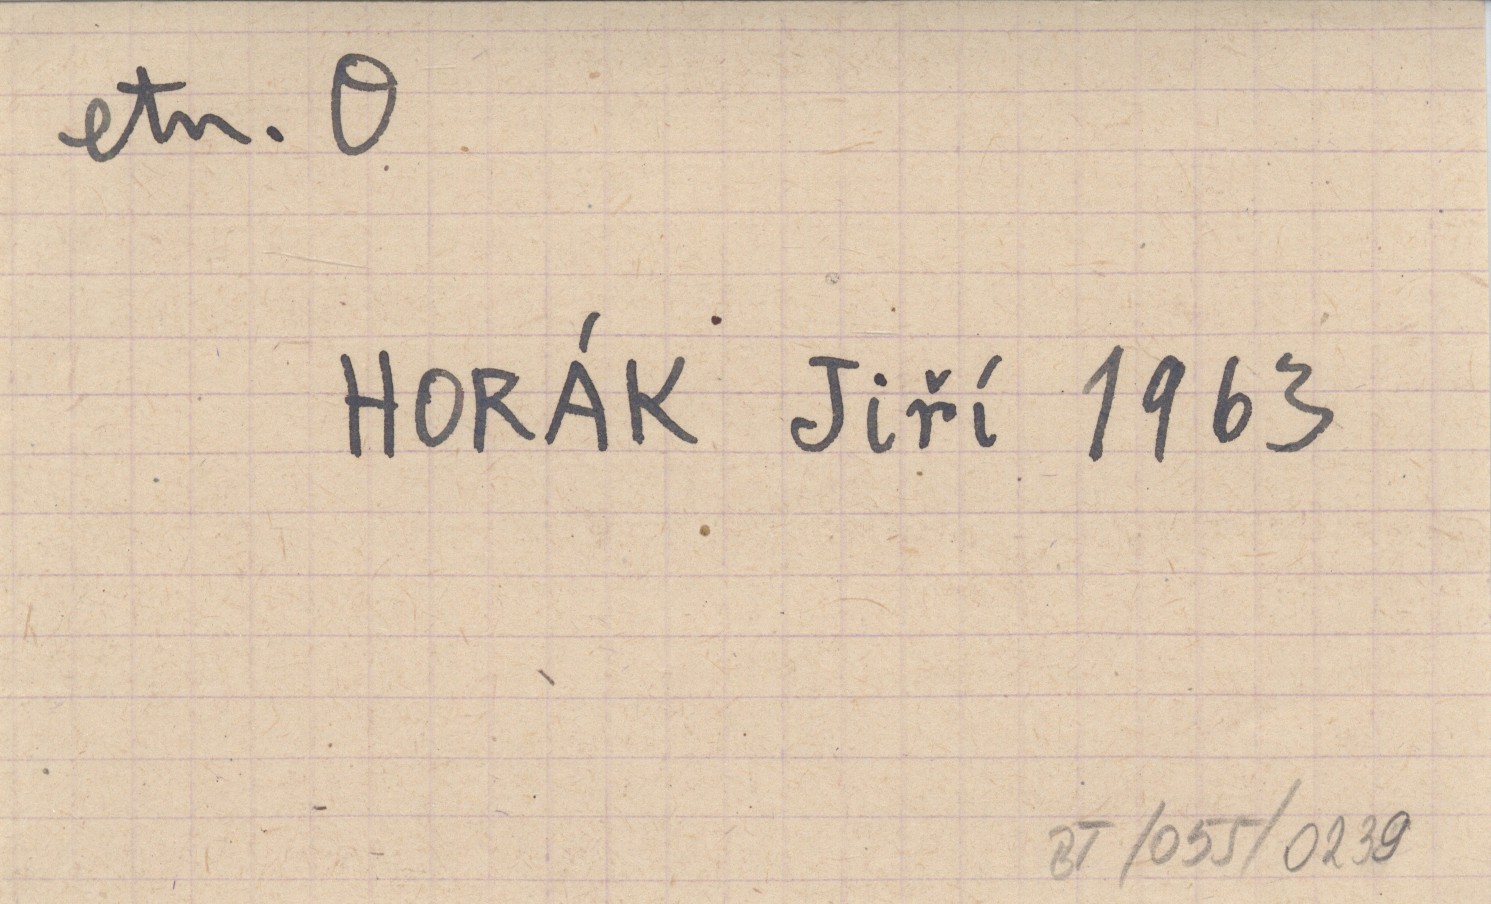 etn. O
HORÁK Jiří 1963
BT/055/0239